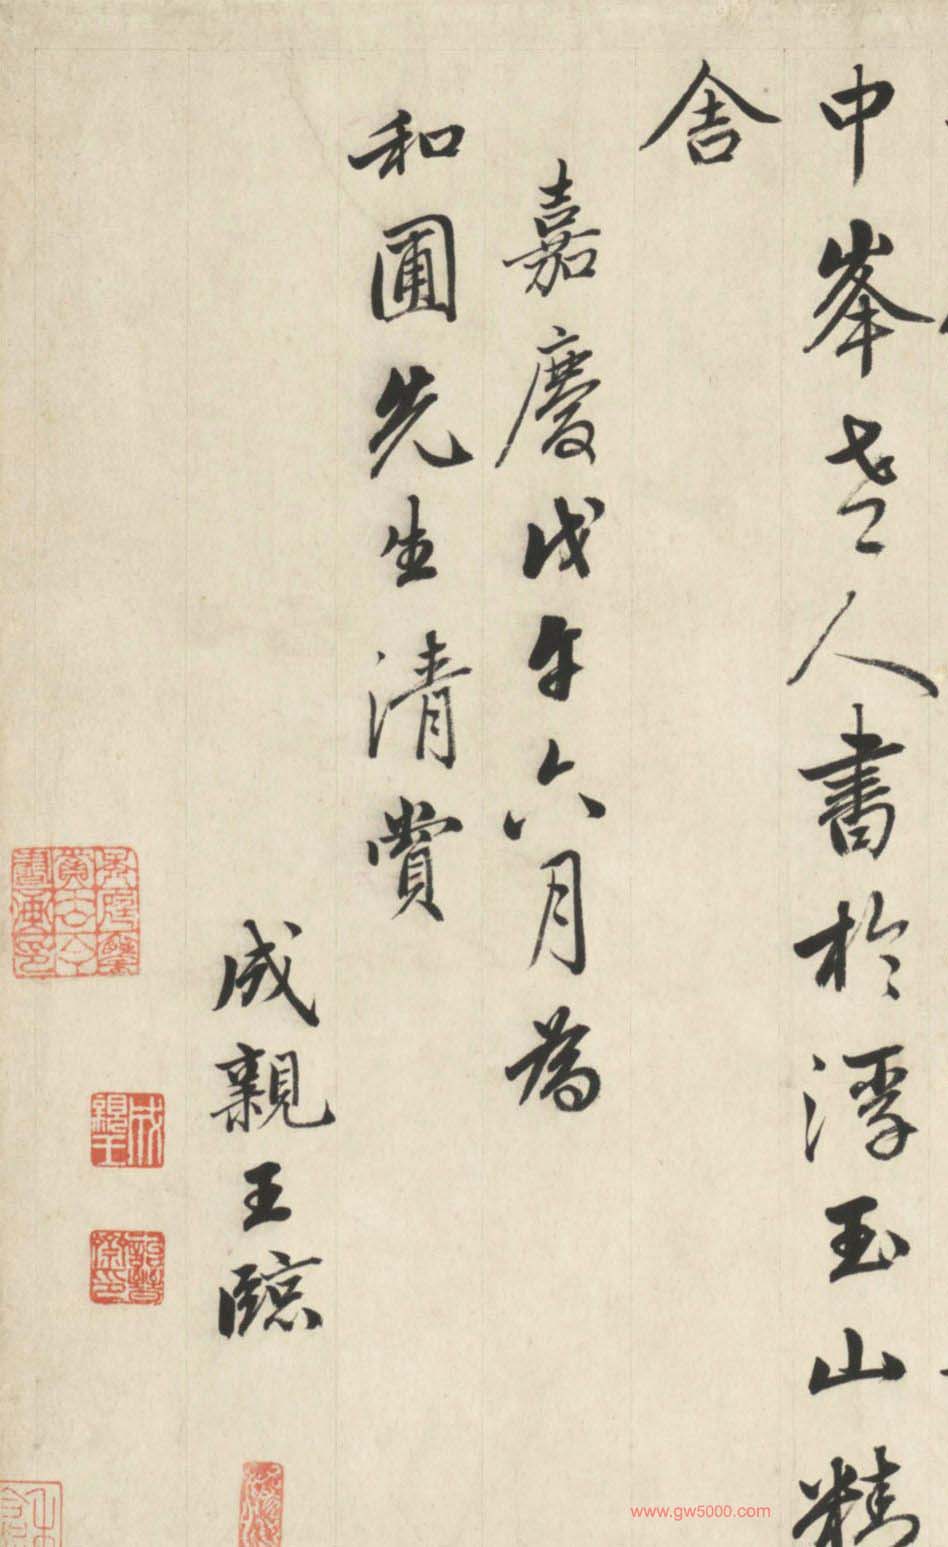 中峯老人書於浮玉山精
舎
嘉慶戊午六月為
和圃先生清賞
成親王臨
成親王
詒晉齋印
www.gw5000.com